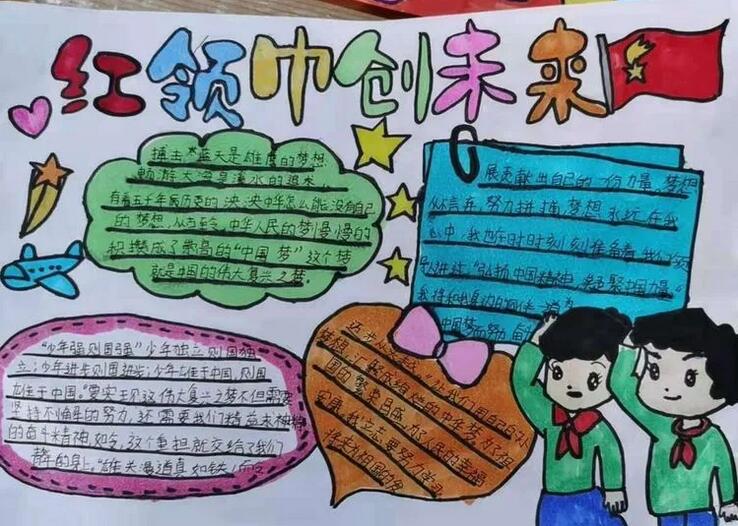 红领巾创未来
搏击蓝天是雄鹰的梦想
畅游大海是溪水的追求
有着五千年病历史的泱泱中华怎么能没有自己
的梦想,从古至今,中华人民的梦慢慢的
积攒成了崇高的“中国梦”这个梦
就是中国的伟大复兴之梦。
展贡献出自己的一份力量,梦想
从言弃,努力拼搏,梦想永远在我
心中,我也在时时刻刻准备着,我们应
弘扬中国精神
聚中国力量。”
我将和我身边的
中国梦而努力奋
“少年强则国强”少年独立则国独
立;少年进步则国进步;少年屹立于中国,则国
屹立于中国。要实现这伟大复兴之梦不但需要
坚持不懈的努力,还需要我们精益求精
的奋斗精神,如今,这个重担就交给了我们
身上。“雄关漫道真如铁,
迈步从头越”,让我们用自己的
梦想,汇聚成绚烂的中华梦,为了祖
国的繁荣昌盛,为了人民的幸福
安康,我立志要努力学习
将来为祖国的